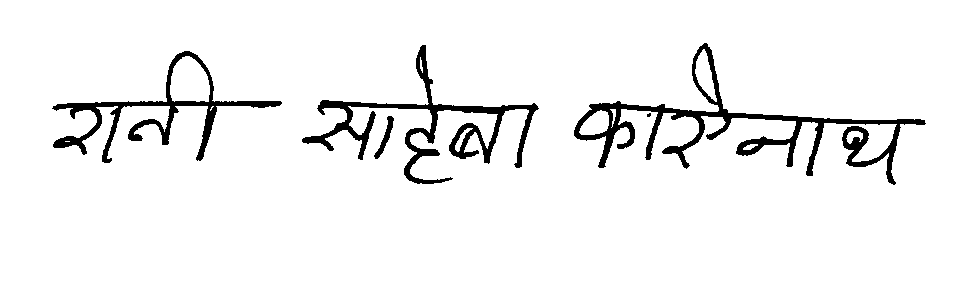 रानी साहेबा कारेनाथ